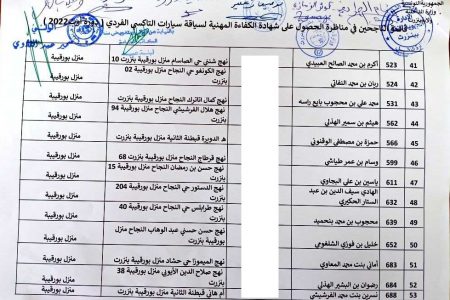 الجمهورية التونسية
قائمة الناجحين في مناظرة الحصول على شهادة الكفاءة المهنية لسياقة سيارات التاكسي الفردي (دورة أوت 2022)
41 523 أكرم بن محمد الصالح العبيدي نهج شنني حي الصاسام منزل بورقيبة 10 بنزرت منزل بورقيبة
42 524 ريان بن محمد النفاتي نهج الكونغو حي النجاح منزل بورقيبة 02 بنزرت منزل بورقيبة
43 531 محمد علي بن محجوب بايع راسه نهج كمال اتاترك النجاح منزل بورقيبة بنزرت منزل بورقيبة
44 538 هيثم بن سمير الهذلي نهج هلال الفرشيشي النجاح منزل بورقيبة 94 بنزرت منزل بورقيبة
45 566 حمزة بن مصطفى الوقنوني الدويرة قيطنة الثانية منزل بورقيبة بنزرت منزل بورقيبة
46 599 وسام بن عمر طياشي نهج قرطاج النجاح منزل بورقيبة 68 بنزرت منزل بورقيبة
47 611 ياسين بن علي البجاوي نهج حسن بن رمضان النجاح منزل بورقيبة 15 بنزرت منزل بورقيبة
48 635 الهادي سيف الدين بن عبد الستار الحكيري نهج الدستور حي النجاح منزل بورقيبة 204 بنزرت منزل بورقيبة
49 639 محجوب بن محمد بنحميد نهج طرابلس حي النجاح منزل بورقيبة 40 بنزرت منزل بورقيبة
50 652 خليل بن فوزي الشلغومي نهج حسن حسني عبد الوهاب النجاح منزل بورقيبة بنزرت منزل بورقيبة
51 653 أماني بنت محمد المعاوي نهج الميموزا حي حشاد منزل بورقيبة بنزرت منزل بورقيبة
52 684 رضوان بن البشير الهذلي نهج صلاح الدين الأيوبي منزل بورقيبة 38 بنزرت منزل بورقيبة
53 687 نسرين بنت محمد الفرشيشي أم هاني قيطنة الثانية منزل بورقيبة منزل بورقيبة